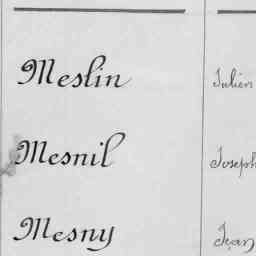 Meslin Julien
Mesnil Joseph
Mesny Jean